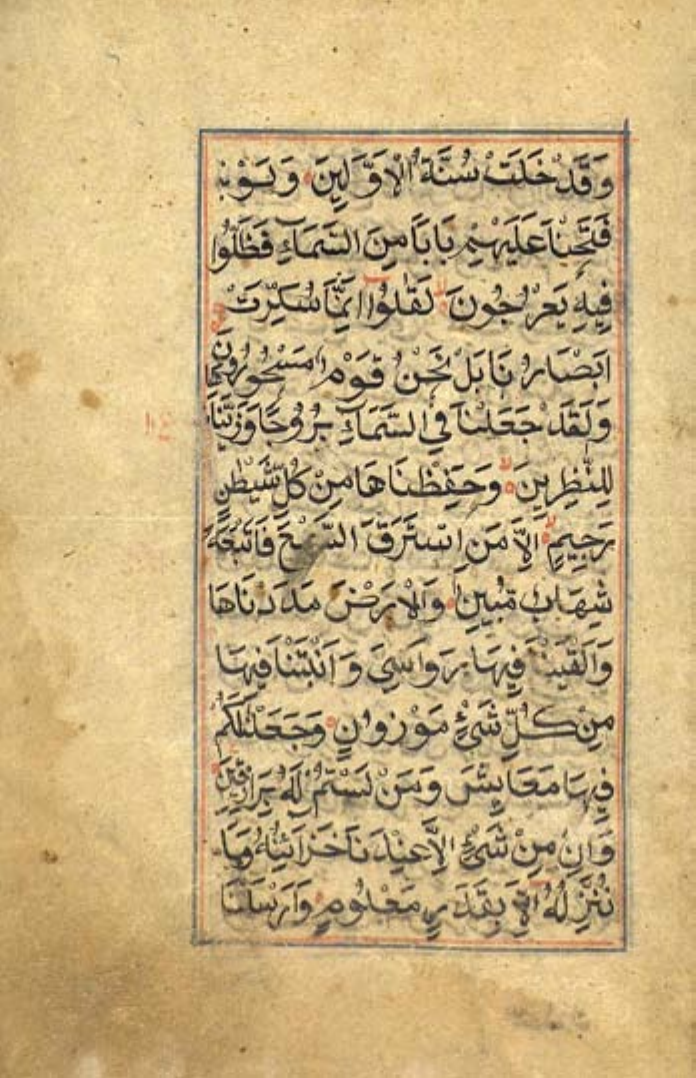 وَقَدْ خَلَتْ سُنَّةُ الْاَوَّلِينَ وَلَوْ
فَتَحْنَا عَلَيْهِمْ بَابًا مِنَ السَّمَاءِ فَظَلُّوا
فِيهِ يَعْرُجُونَ لَقَالُوا اِنَّمَا سُكِّرَتْ
اَبْصَارُنَا بَلْ نَحْنُ قَوْمٌ مَسْحُورُونَ
وَلَقَدْ جَعَلْنَا فِي السَّمَاءِ بُرُوجًا وَزَيَّنَّا
لِلنّٰظِرِينَ وَحَفِظْنَاهَا مِنْ كُلِّ شَيْطٰنٍ
رَجِيمٍ اِلَّا مَنِ اسْتَرَقَ السَّمْعَ فَاَتْبَعَهُ
شِهَابٌ مُبِينٌ وَالْاَرْضَ مَدَدْنَاهَا
وَاَلْقَيْنَا فِيهَا رَوَاسِيَ وَاَنْبَتْنَا فِيهَا
مِنْ كُلِّ شَيْءٍ مَوْزُونٍ وَجَعَلْنَا لَكُمْ
فِيهَا مَعَايِشَ وَمَنْ لَسْتُمْ لَهُ بِرَازِقِينَ
وَاِنْ مِنْ شَيْءٍ اِلَّا عِنْدَنَا خَزَائِنُهُ وَمَا
نُنَزِّلُهُ اِلَّا بِقَدَرٍ مَعْلُومٍ وَاَرْسَلْنَا